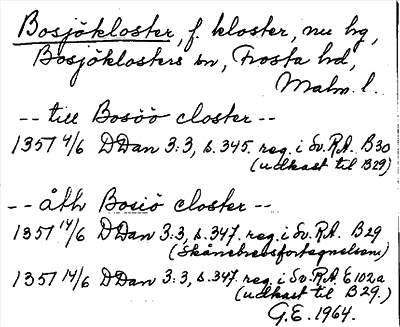 Bosjökloster, f. kloster, nu hg,
Bosjöklosters sn, Frosta hd,
Malm. l.
-- till Bosöö closter --
1351 4/6 DDan 3:3, s. 345. reg. i Sv. R.A. B30
(udkast til B29)
-- åth Bosiö closter --
1351 14/6 DDan 3:3, s. 347. reg. i Sv. R.A. B29
(Skånebrevsfortegnelsen)
1351 14/6 DDan 3:3, s. 347. reg. i Sv. R.A. E102a
(udkast til B29.)
G.E. 1964.